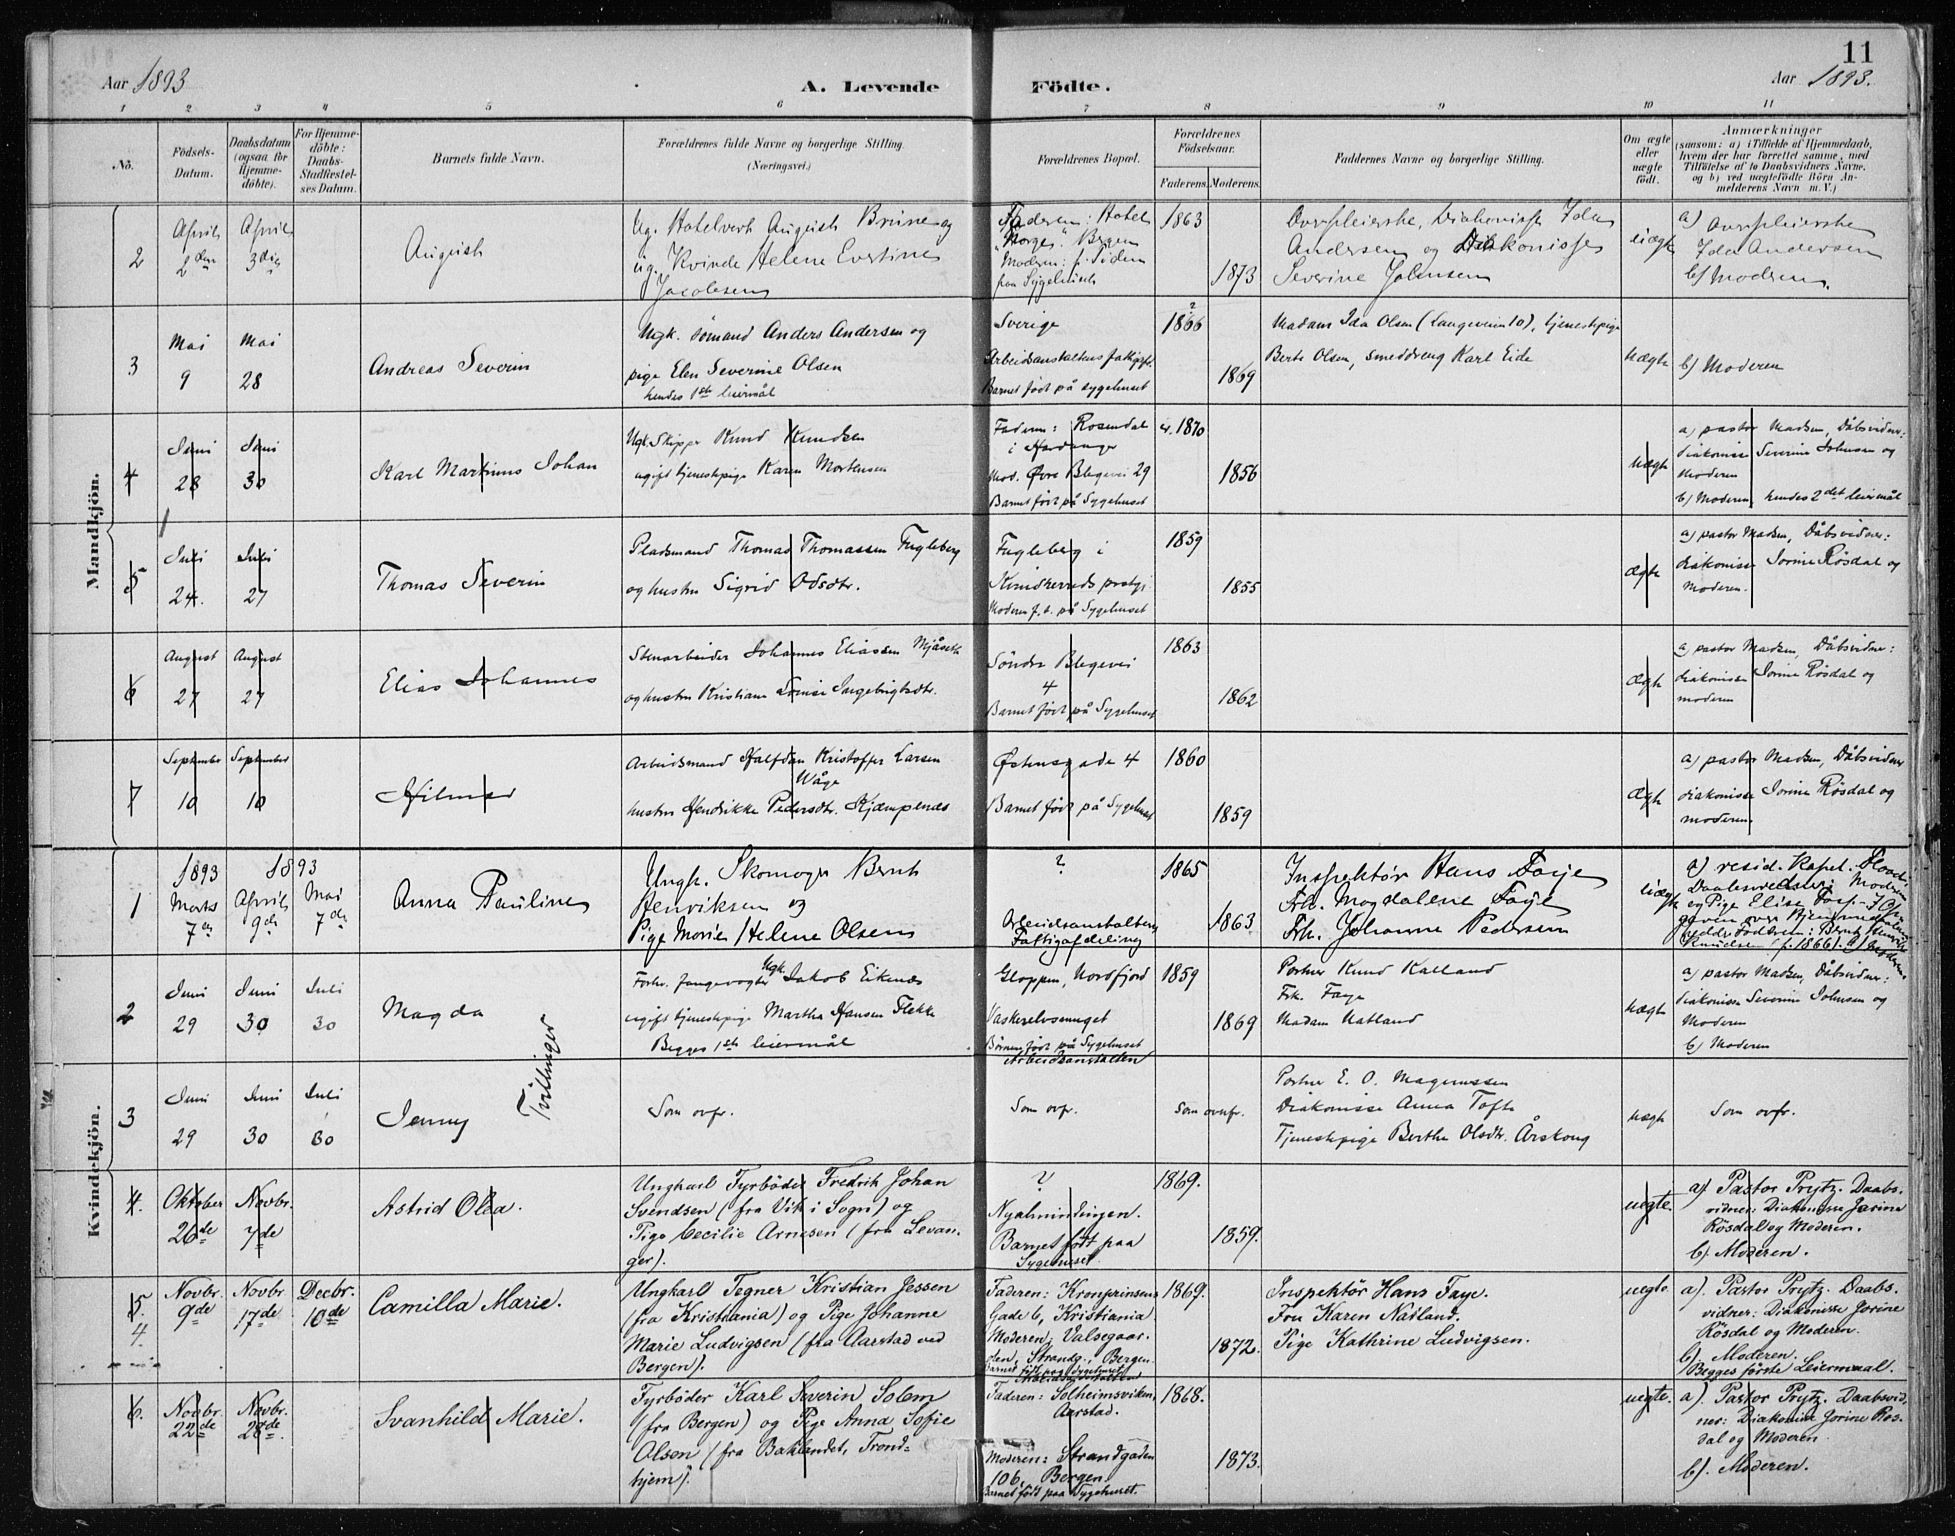 11
Aar 1893
A. Levende
Födte.
Aar 1893.
1 2 3 4 5 6 7 8 9 10 11
No.
Födsels-Datum.
Daabsdatum (ogsaa for Hjemmedöbte).
For Hjemmedöbte: Daabs-Stadfæstelses Datum.
Barnets fulde Navn.
Forældrenes fulde Navne og borgerlige Stilling.
(Næringsvei.)
Forældrenes Bopæl.
Forældrenes Födselsaar.
Faderens. Moderens.
Faddernes Navne og borgerlige Stilling.
Om ægte eller uægte födt.
Anmærkninger
(saasom: a) i Tilfælde af Hjemmedaab, hvem der har forrettet samme, med Tilföielse af to Daabsvidners Navne, og b) ved uægtefödte Börn Anmelderens Navn m. V.)
Mandkjön.
2
April 2den
April 3die
August
Ug. Hotelvert August Brüne og
ug. Kvinde Helene Evertine
Jacobsen
Faderen: Hotel
"Norge" Bergen
Moderen: f. Tiden
paa Sygehuset
1863
1873
Overpleierske, Diakonisse Ida
Andersen og Diakonisse
Severine Johnsen
uægte
a) Overpleierske
Ida Andersen
b) Moderen.
3
Mai 9
Mai 28
Andreas Severin
Ugk. sömand Anders Andersen og
pige Elen Severine Olsen
hendes 1ste leiermål
Sverige
Arbeidsanstaltens fattiggst.
Barnet födt på sygehuset
? 1866
1869
Madam Ida Olsen (Langeveien 10), tjenestepige
Berte Olsen, smeddreng Karl Eide
uægte
b) Moderen
4
Juni 28
Juni 30
Karl Martinus Johan
Ugk. Skipper Knud Knudsen
ugift tjenestepige Karen Mortensen
Faderen: Rosendal
i Hardanger
Mod. Øvre Blegevei 29
Barnet født på Sygehuset
cr. 1870
1856
uægte
a) pastor Madsen, Dåbsvidner:
diakonisse Severine Johnsen og
Moderen
b) Moderen, hendes 2det leiermål
5
Juli 24.
Juli 27
Thomas Severin
Pladsmand Thomas Thomassen Fugleberg
og hustru Sigrid Odsdtr.
Fugleberg i
Kvindherreds prstgj.
Moderen f. t. på Sygehuset
1859
1855
ægte
a) pastor Madsen, Dåbsvidner:
diakonisse Jorine Rösdal og
Moderen.
6
August 27
August 27
Elias Johannes
Stenarbeider Johannes Eliassen Mjåseth
og hustru Kristiane Lovise Ingebrigtsdtr.
Söndre Blegevei
4
Barnet født på Sygehuset
1863
1862
ægte
a) pastor Madsen, Dåbsvidner:
diakonisse Jorine Rösdal og
moderen
7
September 10
September 10
Hilmar
Arbeidsmand Halfdan Kristoffer Larsen
Våge
hustru Hendrikke Pedersdtr. Kjæmpenes
Østensgade 4
Barnet født på Sygehuset
1860
1859
ægte
a) pastor Madsen, Dåbsvidner
diakonisse Jorine Rösdal og
moderen
Kvindekjön.
1
1893 Marts 7de
1893
April 9de
Mai 7de
Anna Pauline
Ungk. Skomager Bernt
Henriksen og
Pige Marie Helene Olsen
?
Arbeidsanstaltens
Fattigafdeling
1865
1863
Inspektör Hans Faye
Frk. Magdalene Faye
Frk. Johanne Pedersen
uægte
a) resid. Kapel. Flood.
Daabsvidner: Moderen
og Pige Elise
2
Juni 29
Juni 30
Juli 30
Magda
Forhv. fangevogter Ugk. Jakob Eikenæs
ugift tjenestepige Martha Hansen Flekke
Begges 1ste leiermål
Gloppen, Nordfjord
Vaskerelvsmuget
Børnene født på Sygehuset
Arbeidsanstalten
1859
1869
Portner Knud Kalland
Frk. Faye
Madam Natland
uægte
a) pastor Madsen, Dåbsvidner:
diakonisse Severine Johnsen og
Moderen
b) Moderen
Tvillinger
3
Juni 29
Juni 30
Juli 30
Jenny
Som ovfr.
Som ovfr.
Som ovenfr.
Portner E. O. Magnussen
Diakonisse Anna Tofte
Tjenestepige Berthe Olsdtr. Årskoug
uægte
Som ovfr.
4.
Oktober 26de
Novbr. 7de
Astrid Olea.
Ungkarl Fyrböder Fredrik Johan
Svendsen (fra Vik i Sogn) og
Pige Cecilie Arnesen (fra Levan-
ger).
?
Nyalmindingen.
Barnet født paa
Sygehuset.
1869.
1859.
uegte.
a). Pastor Prytz. Daabs-
vidner: Diakonisse Jorine
Rösdal og Moderen.
b). Moderen.
5.
4
Novbr. 9de
Novbr 17de
Decbr. 10de
Camilla Marie.
Ungkarl Tegner Kristian Jessen
(fra Kristiania) og Pige Johanne
Marie Ludvigsen (fra Aarstad ved
Bergen).
Faderen: Kronprinsens
Gade 6, Kristiania
Moderen: Valsegaar-
den, Strandg., Bergen.
Barnet født paa Sygehuset
1869.
1872.
Inspektör Hans Faye.
Fru Karen Natland.
Pige Kathrine Ludvigsen.
uegte
a). Pastor Prytz. Daabs-
vidner: Diakonisse Jorine
Rösdal og Moderen.
b). Moderen.
Begges förste Leiermaal.
6.
Novbr. 22de
Novbr. 28de
Svanhild Marie.
Fyrböder Karl Severin Solem
(fra Bergen) og Pige Anna Sofie
Olsen (fra Baklandet, Trond-
hjem).
Faderen: Solheimsviken,
Aarstad.
Moderen: Strandgaden
106, Bergen.
Barnet født paa Sygehuset.
1868.
1873.
uegte.
a). Pastor Prytz. Daabsvid-
ner: Diakonisse Jorine Rös-
dal og Moderen
b). Moderen.